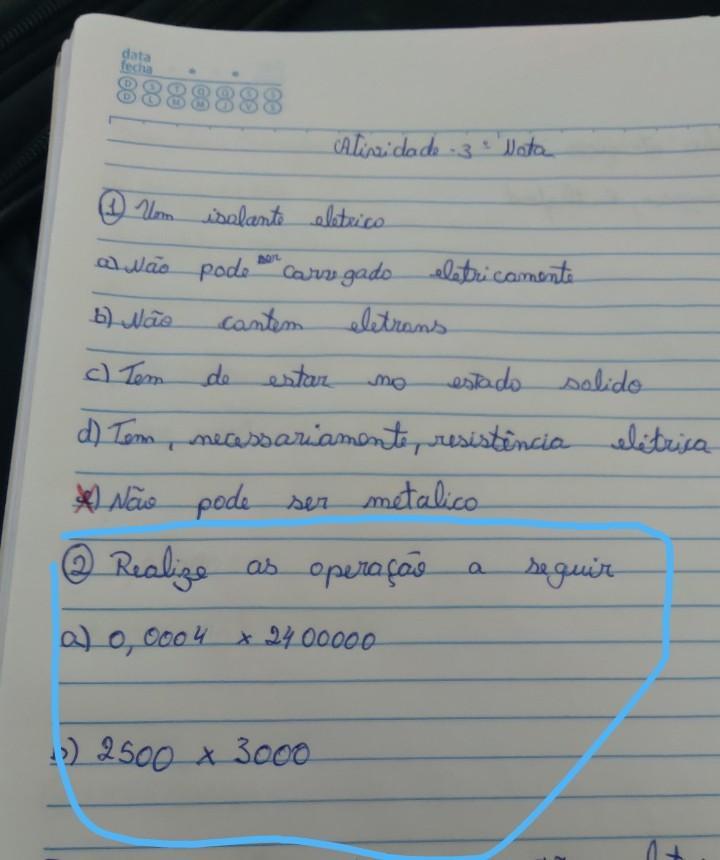 data
fecha
D S T Q Q S S
D L M M J V S
Atividade - 3ª Nota
① Um isolante eletrico
a) Não pode ser carregado eletricamente
b) Não contem eletrons
c) Tem de estar no estado solido
d) Tem, necessariamente, resistência elétrica
e) Não pode ser metalico
② Realize as operação a seguir
a) 0,0004 x 2400000
b) 2500 x 3000